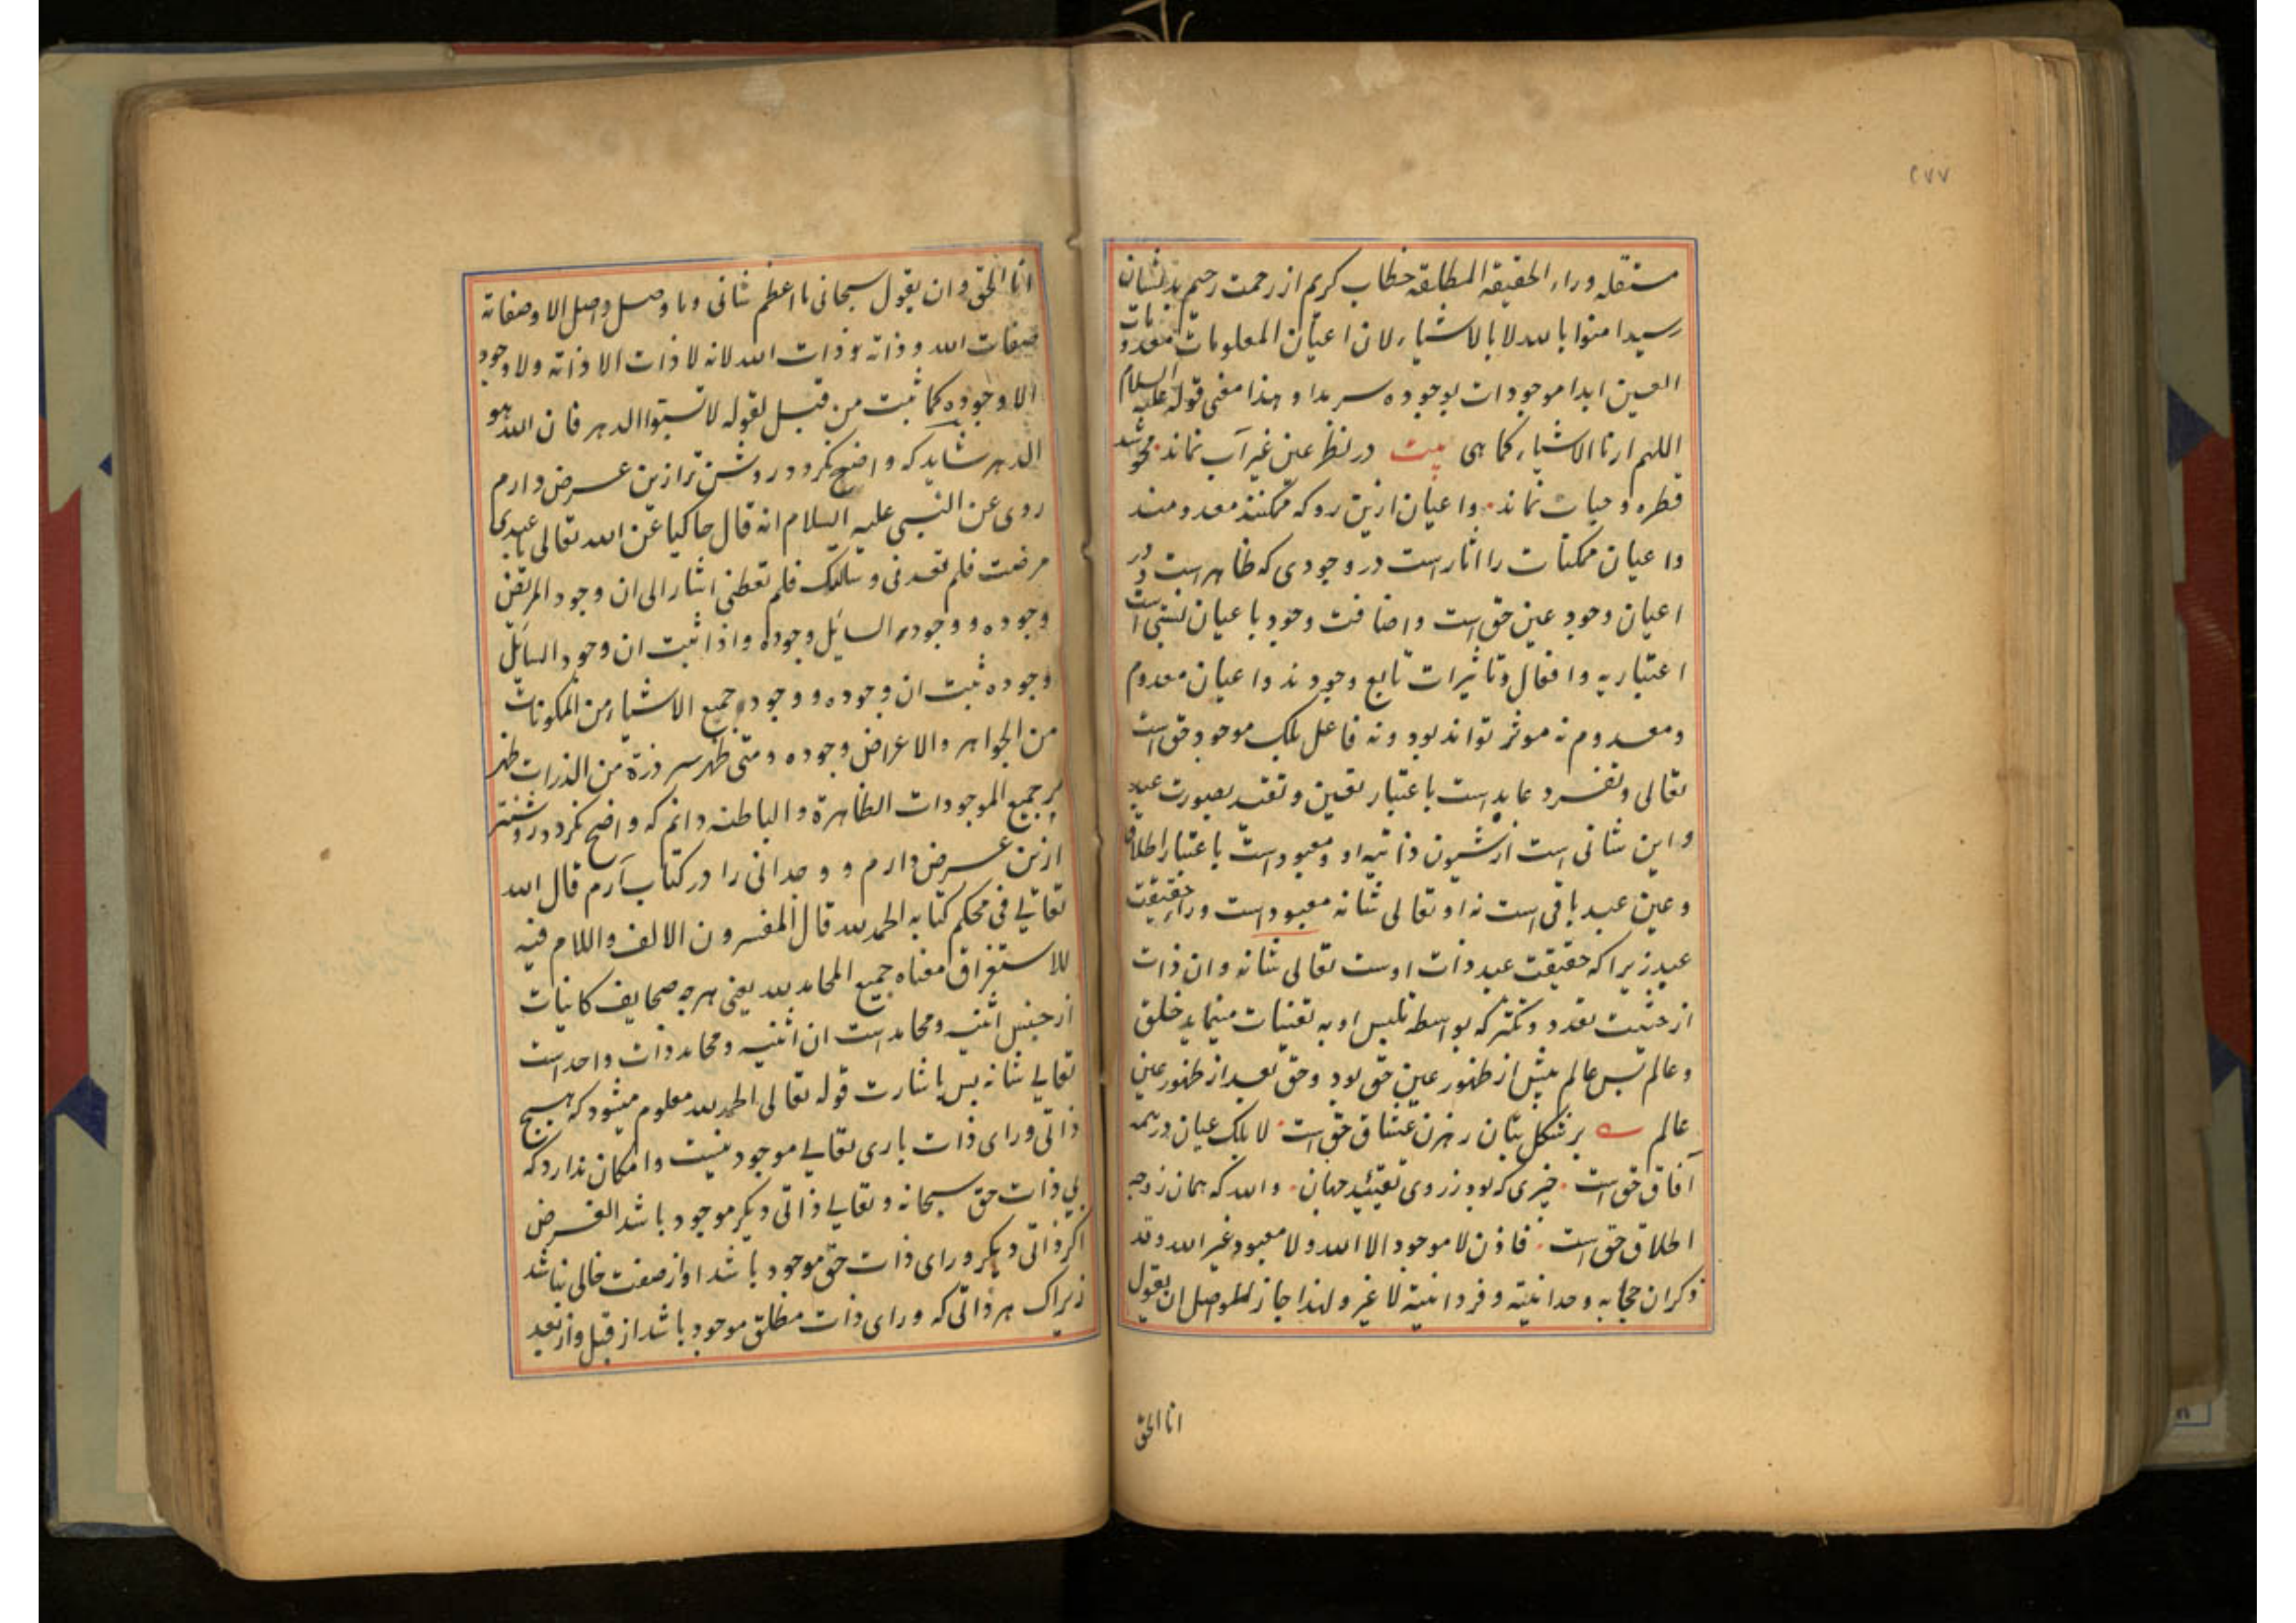 ٢٧٧
مستقله وراء الحقیقة المطابقه خطاب کریم از رحمت رحیم بدیشان
رسید امنوا بالله لا بالاشیاء لان اعیان المعلومات معدومات
العین ابدا موجودات بوجوده سرمدا و هذا معنی قوله علیه السلام
اللهم ارنا الاشیاء کما هی بیت در نظر عین غیر آب نماند محو شد
قطره و حیات نماند واعیان ازین رو که ممکنند معدومند
واعیان ممکنات را اثار است در وجودی که ظاهر است در
اعیان وجود عین حق است واضافت وجود باعیان نسبتی است
اعتباریه وافعال وتاثیرات تابع وجودند واعیان معدوم
ومعدوم نه موثر تواند بود ونه فاعل بلک موجود حق است
تعالی وتفرد عابد است باعتبار تعین وتقید بصورت عبد
واین شانی است از شیون ذاتیه او ومعبود است باعتبار اطلاق
وعین عبد باقی است نه او تعالی شانه معبود است وراء حقیقت
عبد زیرا که حقیقت عبد ذات اوست تعالی شانه وان ذات
از حیثیت تعدد وتکثر که بواسطه تلبس او به تعینات مینماید خلق
وعالم پس عالم پیش از ظهور عین حق بود وحق بعد از ظهور عین
عالم بر شکل بتان رهزن عشاق حق است لا بلک عیان در همه
آفاق حق است چیزی که بود ز روی تقیید جهان والله که همان ز وجه
اطلاق حق است فاذن لا موجود الا الله ولا معبود غیر الله وقد
ذکر ان حجابه وحدانیته وفردانیته لا غیر ولهذا جاز للواصل ان یقول
انا الحق
انا الحق وان یقول سبحانی ما اعظم شانی وما وصل واصل الا وصفاته
صفات الله وذاته وذات الله لانه لا ذات الا ذاته ولا وجود
الا وجوده کما ثبت من قبل لقوله لا تسبوا الدهر فان الله هو
الدهر شاید که واضح نکردد روشن تر ازین عرض دارم
روی عن النبی علیه السلام انه قال حاکیا عن الله تعالی یا عبدی
مرضت فلم تعدنی وسالتک فلم تعطنی اشار الی ان وجود المریض
وجوده ووجود السایل وجوده واذا ثبت ان وجود السایل
وجوده ثبت ان وجوده ووجود جمیع الاشیاء من المکونات
من الجواهر والاعراض وجوده ومتی ظهر سر ذرة من الذرات ظهر
سر جمیع الموجودات الظاهرة والباطنه دانم که واضح نکردد روشنتر
ازین عرض دارم و وحدانی را در کتاب آرم قال الله
تعالی فی محکم کتابه الحمد لله قال المفسرون الالف واللام فیه
للاستغراق معناه جمیع المحامد لله یعنی هر چه صحایف کاینات
از جنس اثنیه ومحامد است ان اثنیه ومحامد ذات واحد است
تعالی شانه پس باشارت قوله تعالی الحمد لله معلوم میشود که هیچ
ذاتی ورای ذات باری تعالی موجود نیست وامکان ندارد که
بی ذات حق سبحانه وتعالی ذاتی دیکر موجود باشد الغرض
اکر ذاتی دیکر ورای ذات حق موجود باشد او از صفت خالی نباشد
زیراک هر ذاتی که ورای ذات مطلق موجود باشد از قبل واز بعد